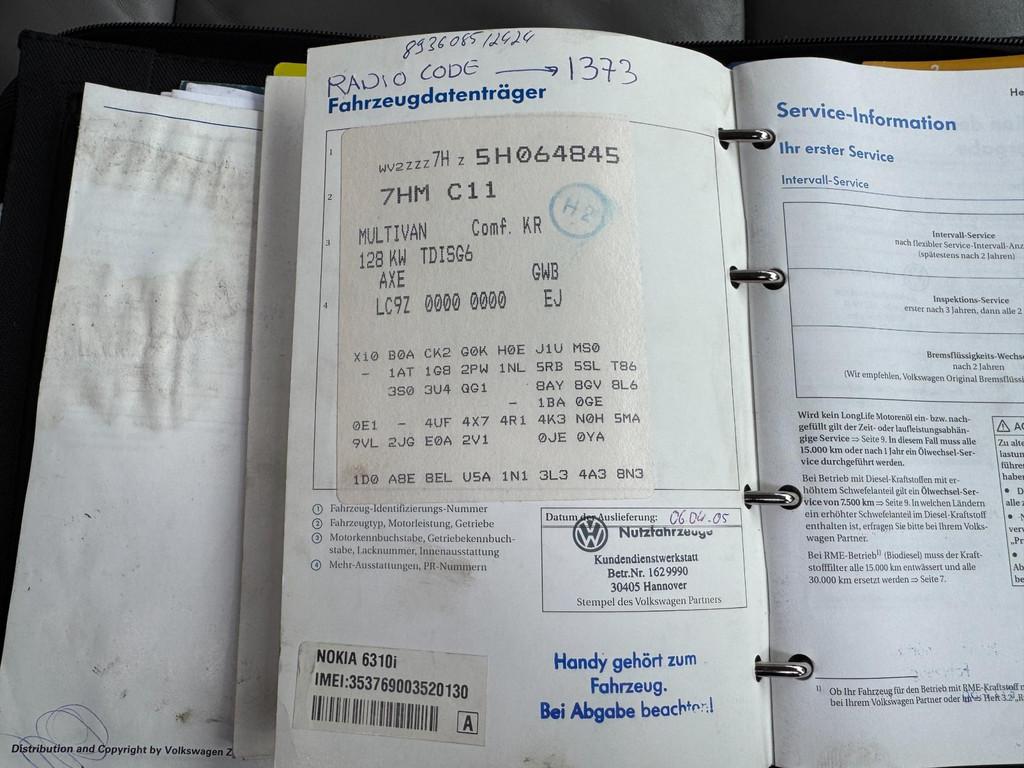 8936085/2424
RADIO CODE → 1373
Fahrzeugdatenträger
1
WV2ZZZ7H Z 5H064845
2
7HM C11
H2
3
MULTIVAN Comf. KR
128 KW TDISG6
AXE GWB
4
LC9Z 0000 0000 EJ
X10 B0A CK2 G0K H0E J1U MS0
- 1AT 1G8 2PW 1NL 5RB 5SL T86
3S0 3U4 QG1 8AY 8GV 8L6
- 1BA 0GE
0E1 - 4UF 4X7 4R1 4K3 N0H 5MA
9VL 2JG E0A 2V1 0JE 0YA
1D0 A8E 8EL U5A 1N1 3L3 4A3 8N3
① Fahrzeug-Identifizierungs-Nummer
② Fahrzeugtyp, Motorleistung, Getriebe
③ Motorkennbuchstabe, Getriebekennbuch-
stabe, Lacknummer, Innenausstattung
④ Mehr-Ausstattungen, PR-Nummern
Datum der Auslieferung: 06.04.05
Nutzfahrzeuge
Kundendienstwerkstatt
Betr.Nr. 162 9990
30405 Hannover
Stempel des Volkswagen Partners
NOKIA 6310i
IMEI:353769003520130
A
Handy gehört zum
Fahrzeug.
Bei Abgabe beachten!
Distribution and Copyright by Volkswagen Z
He
Service-Information
Ihr erster Service
Intervall-Service
Intervall-Service
nach flexibler Service-Intervall-Anz
(spätestens nach 2 Jahren)
Inspektions-Service
erster nach 3 Jahren, dann alle 2
Bremsflüssigkeits-Wechs
nach 2 Jahren
(Wir empfehlen, Volkswagen Original Bremsflüssi
Wird kein LongLife Motorenöl ein- bzw. nach-
gefüllt gilt der Zeit- oder laufleistungsabhän-
gige Service ⇒ Seite 9. In diesem Fall muss alle
15.000 km oder nach 1 Jahr ein Ölwechsel-Ser-
vice durchgeführt werden.
Bei Betrieb mit Diesel-Kraftstoffen mit er-
höhtem Schwefelanteil gilt ein Ölwechsel-Ser-
vice von 7.500 km ⇒ Seite 9. In welchen Ländern
ein erhöhter Schwefelanteil im Diesel-Kraftstoff
enthalten ist, erfragen Sie bitte bei Ihrem Volks-
wagen Partner.
Bei RME-Betrieb1) (Biodiesel) muss der Kraft-
stofffilter alle 15.000 km entwässert und alle
30.000 km ersetzt werden ⇒ Seite 7.
AC
Zu alte
lastun
führen
haben
• D
alle
verv
„Pr
Ab
be
1) Ob Ihr Fahrzeug für den Betrieb mit RME-Kraftstoff
bei Ihrem Volkswagen Partner oder im ⇒ Heft 3.2